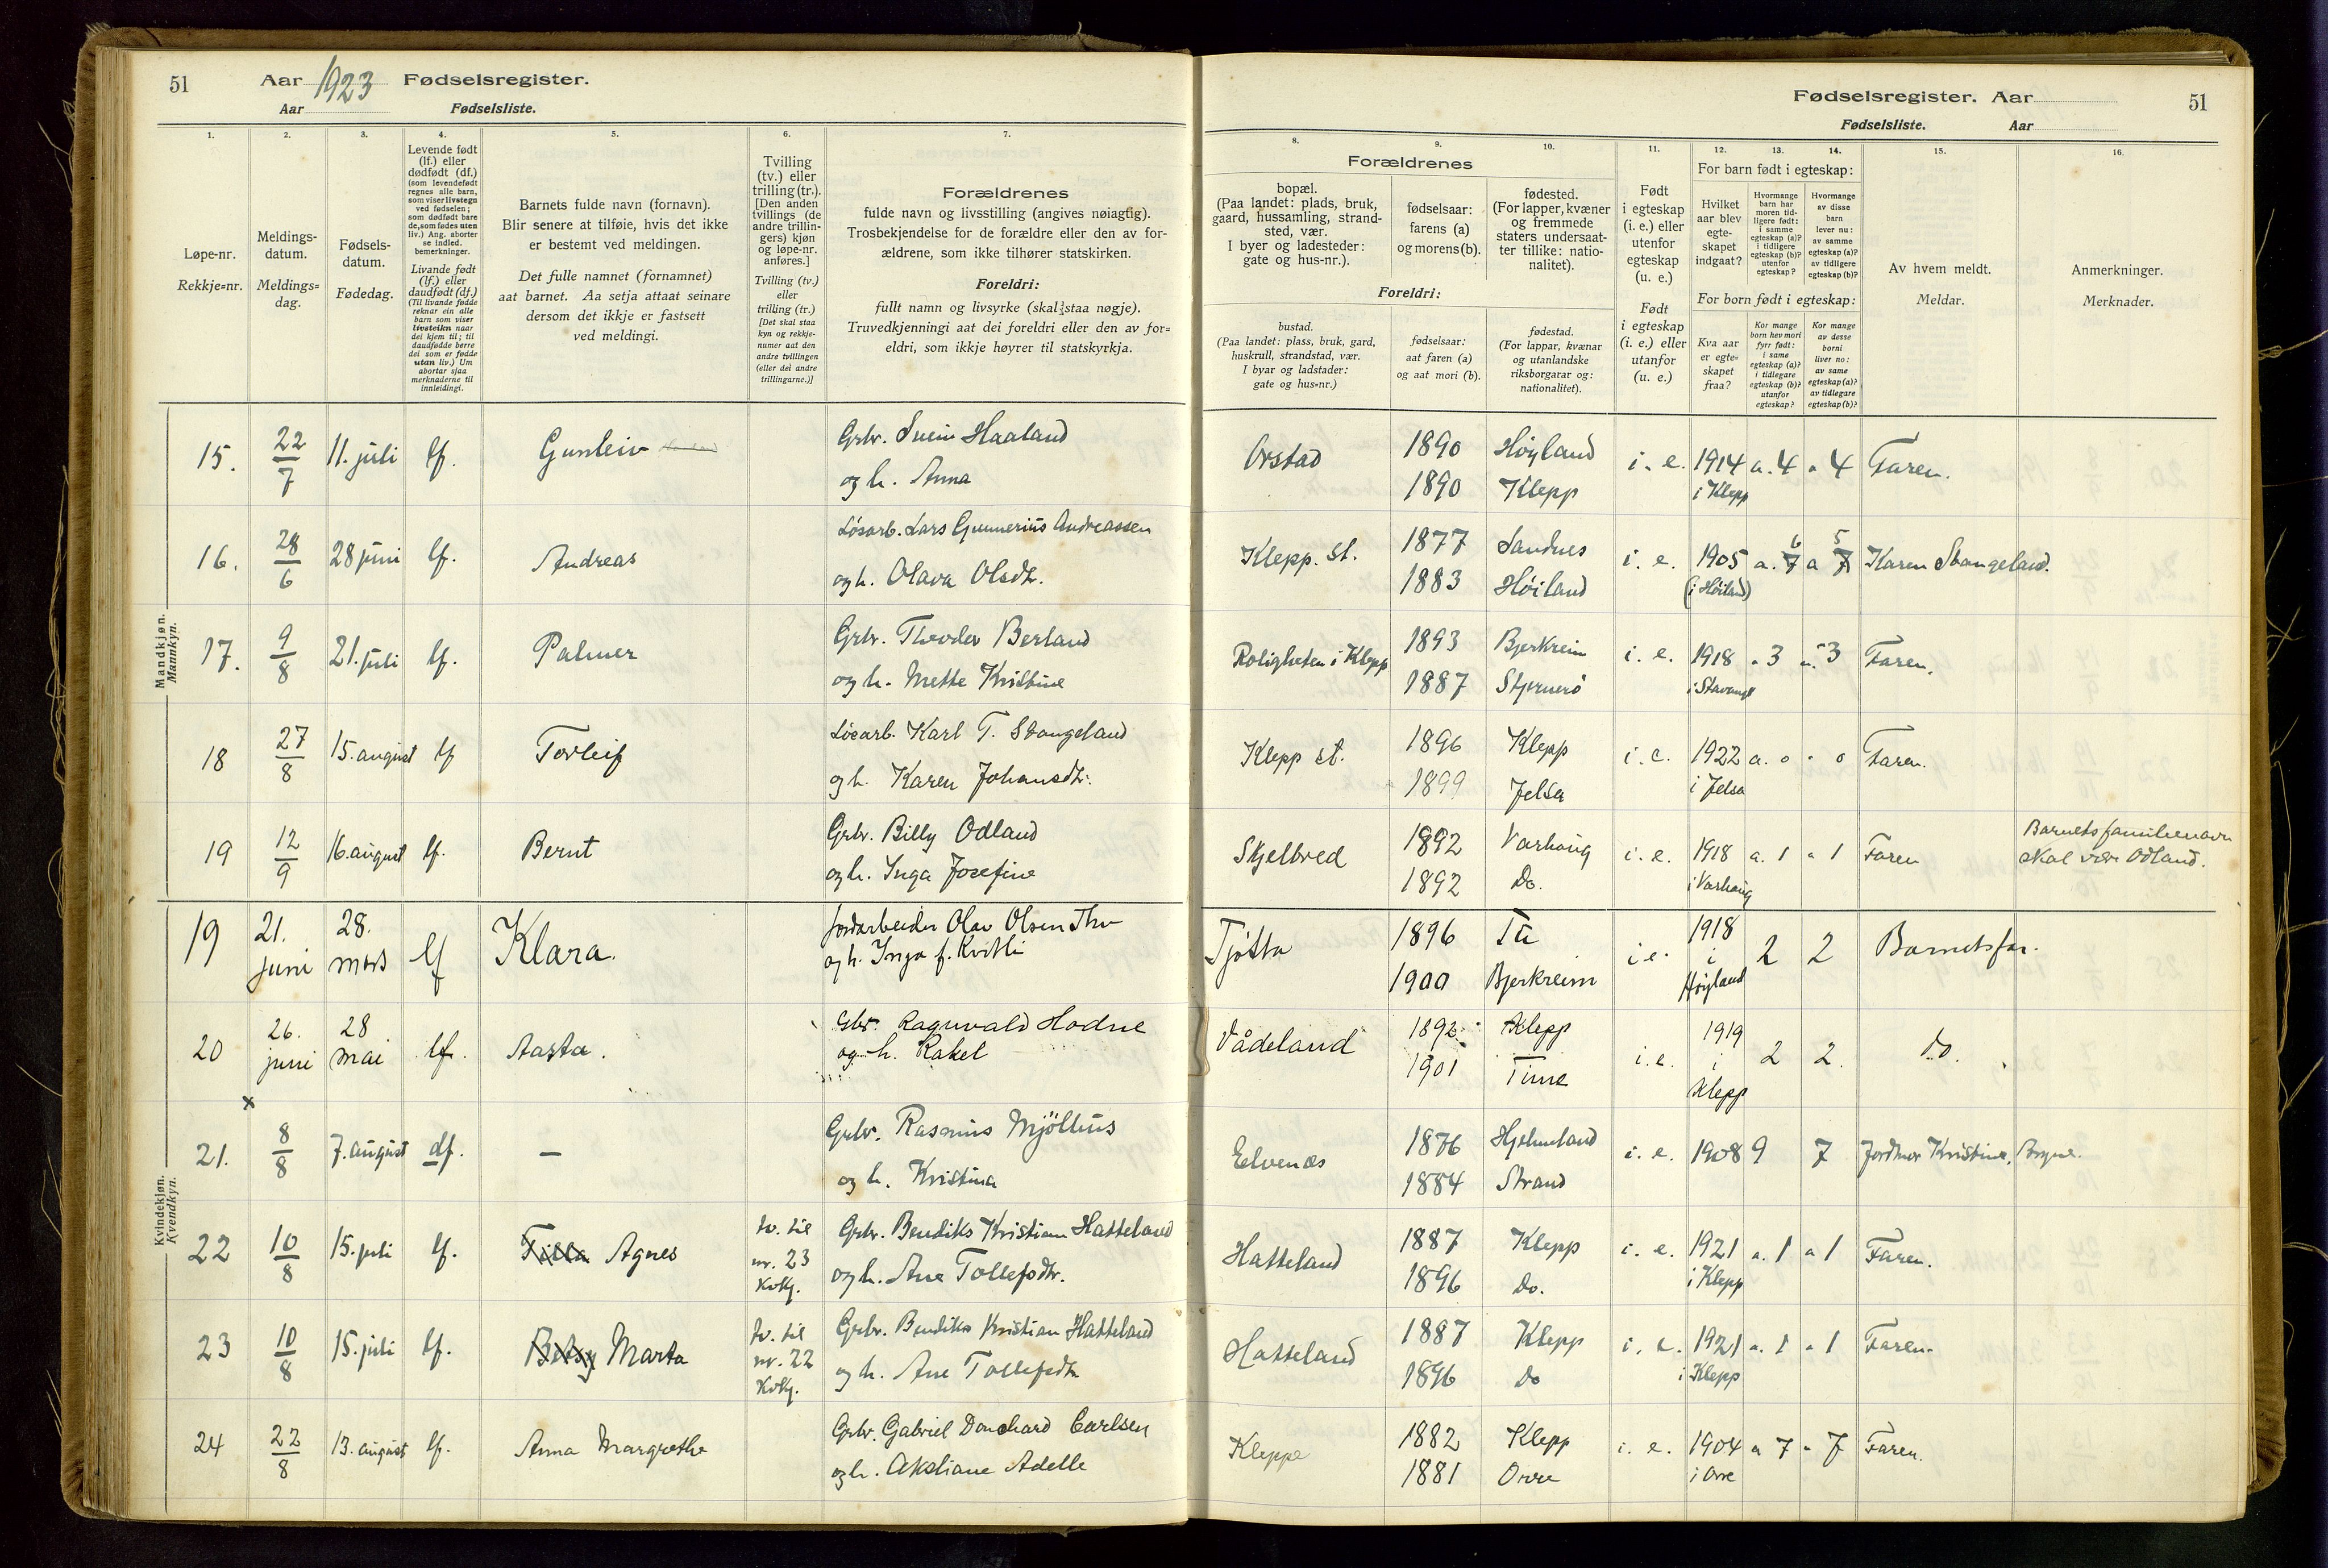 51
Aar 1923 Fødselsregister.
Aar Fødselsliste.
1. 2. 3. 4. 5. 6. 7.
Løpe-nr.
Rekkje=nr.
Meldings-
datum.
Meldings=
dag.
Fødsels-
datum.
Fødedag.
Levende født
(lf.) eller
dødfødt (df.)
(som levendefødt
regnes alle barn,
som viser livstegn
ved fødselen;
som dødfødt bare
de, som fødes uten
liv.) Ang. aborter
se indled.
bemerkninger.
Livande født
(lf.) eller
daudfødt (df.)
(Til livande fødde
reknar ein alle
born som viser
livsteikn naar
dei kjem til; til
daudfødde berre
dei som er fødde
utan liv.) Um
abortar sjaa
merknaderne til
innleidingi.
Barnets fulde navn (fornavn).
Blir senere at tilføie, hvis det ikke
er bestemt ved meldingen.
Det fulle namnet (fornamnet)
aat barnet. Aa setja attaat seinare
dersom det ikkje er fastsett
ved meldingi.
Tvilling
(tv.) eller
trilling (tr.).
[Den anden
tvillings (de
andre trillin-
gers) kjøn
og løpe-nr.
anføres.]
Tvilling (tv.)
eller
trilling (tr.)
[Det skal staa
kyn og rekkje-
numer aat den
andre tvillingen
(eller dei andre
trillingarne.)]
Forældrenes
fulde navn og livsstilling (angives nøiagtig).
Trosbekjendelse for de forældre eller den av for-
ældrene, som ikke tilhører statskirken.
Foreldri:
fullt namn og livsyrke (skal staa nøgje).
Truvedkjenningi aat dei foreldri eller den av for=
eldri, som ikkje høyrer til statskyrkja.
Mandkjøn.
Mannkyn.
15. 22/7 11. juli lf. Gunleiv Grbr. Svein Haaland
og h. Anna
16. 28/6 28 juni lf. Andreas Løsarb. Lars Gunnerius Andreassen
og h. Olava Olsdtr.
17. 9/8 21. juli lf. Palmer Grbr. Theodor Berland
og h. Mette Kristine
18 27/8 15. august lf Torleif Løsarb. Karl T. Stangeland
og h. Karen Johansdtr.
19 12/9 16. august lf. Bernt Grbr. Billy Odland
og h. Inga Josefine
Kvindekjøn.
Kvendkyn.
19 21. juni 28. mars lf Klara. Jordarbeider Olav Olsen Thu
og h. Inga f. Kvitli
20 26. juni 28 mai lf. Aasta. Gbr. Ragnvald Hodne
og h. Rakel
x
21. 8/8 7. august df. — Grbr. Rasmus Mjölhus
og h. Kristina
22 10/8 15. juli lf. Tilla Agnes tv. til nr. 23 kvkj. Grbr. Bendiks Kristian Hatteland
og h. Ane Tollefsdtr.
23 10/8 15. juli lf. Betsy Marta tv. til nr. 22 kvkj. Grbr. Bendiks Kristian Hatteland
og h. Ane Tollefsdtr
24 22/8 13. august lf. Anna Margrethe Grbr. Gabriel Carlsen
og h. Akseliane Adelle
Fødselsregister. Aar
51
Fødselsliste. Aar
8. 9. 10. 11. 12. 13. 14. 15. 16.
Forældrenes
bopæl.
(Paa landet: plads, bruk,
gaard, hussamling, strand-
sted, vær.
I byer og ladesteder:
gate og hus-nr.).
fødselsaar:
farens (a)
og morens (b).
fødested.
(For lapper, kvæner
og fremmede
staters undersaat-
ter tillike: natio-
nalitet).
Foreldri:
bustad.
(Paa landet: plass, bruk, gard,
huskrull, strandstad, vær.
I byar og ladstader:
gate og hus=nr.)
fødselsaar:
aat faren (a)
og aat mori (b).
fødestad.
(For lappar, kvænar
og utanlandske
riksborgarar og:
nationalitet).
Født
i egteskap
(i. e.) eller
utenfor
egteskap
(u. e.)
Født
i egteskap
(i. e.) eller
utanfor
(u. e.)
For barn født i egteskap:
Hvilket
aar blev
egte-
skapet
indgaat?
Hvormange
barn har
moren tid-
ligere født:
i samme
egteskap (a)?
i tidligere
egteskap (b)?
utenfor
egteskap?
Hvormange
av disse
barn
lever nu:
av samme
egteskap (a)?
av tidligere
egteskap (b)?
For born født i egteskap:
Kva aar
er egte=
skapet
fraa?
Kor mange
born hev mori
fyrr født:
i same
egteskap (a)?
i tidlegare
egteskap (b)?
utanfor
egteskap?
Kor mange
av desse
borni
liver no:
av same
egteskap (a)?
av tidlegare
egteskap (b)?
Av hvem meldt.
Meldar.
Anmerkninger.
Merknader.
Orstad 1890 Høyland i. e. 1914 a. 4 " 4 Faren.
1890 Klepp i Klepp
Klepp. St. 1877 Sandnes i. e. 1905 a. 7 6 a 7 5 Karen Stangeland.
1883 Høiland (i Høiland)
Roligheten i Klepp 1893 Bjerkreim i. e. 1918 " 3 a. 3 Faren.
1887 Stjernerö i Stavanger
Klepp st. 1896 Klepp i. e. 1922 a. 0 " 0 Faren.
1899 Jelsa i Jelsa
Skjelbred 1892 Varhaug i. e. 1918 a. 1 " 1 Faren Barnets familienavn
1892 Do. i Varhaug skal være Odland.
Tjøtta 1896 Tu i e. 1918 i Høyland 2 2 Barnets far.
1900 Bjerkreim
Vådeland 1892 Klepp i. e. 1919 i Klepp 2 2. do.
1901 Time
Elvenæs 1876 Hjelmeland i. e. 1908 9 7 Jordmor Kristine, Bryne.
1884 Strand
Hatteland 1887 Klepp i. e. 1921 a. 1 a 1 Faren.
1896 Do. i Klepp
Hatteland 1887 Klepp i. e. 1921 a. 1 a 1 Faren.
1896 Do i Klepp
Kleppe 1882 Klepp i. e. 1904 a 7 " 7 Faren.
1881 Orre i Orre